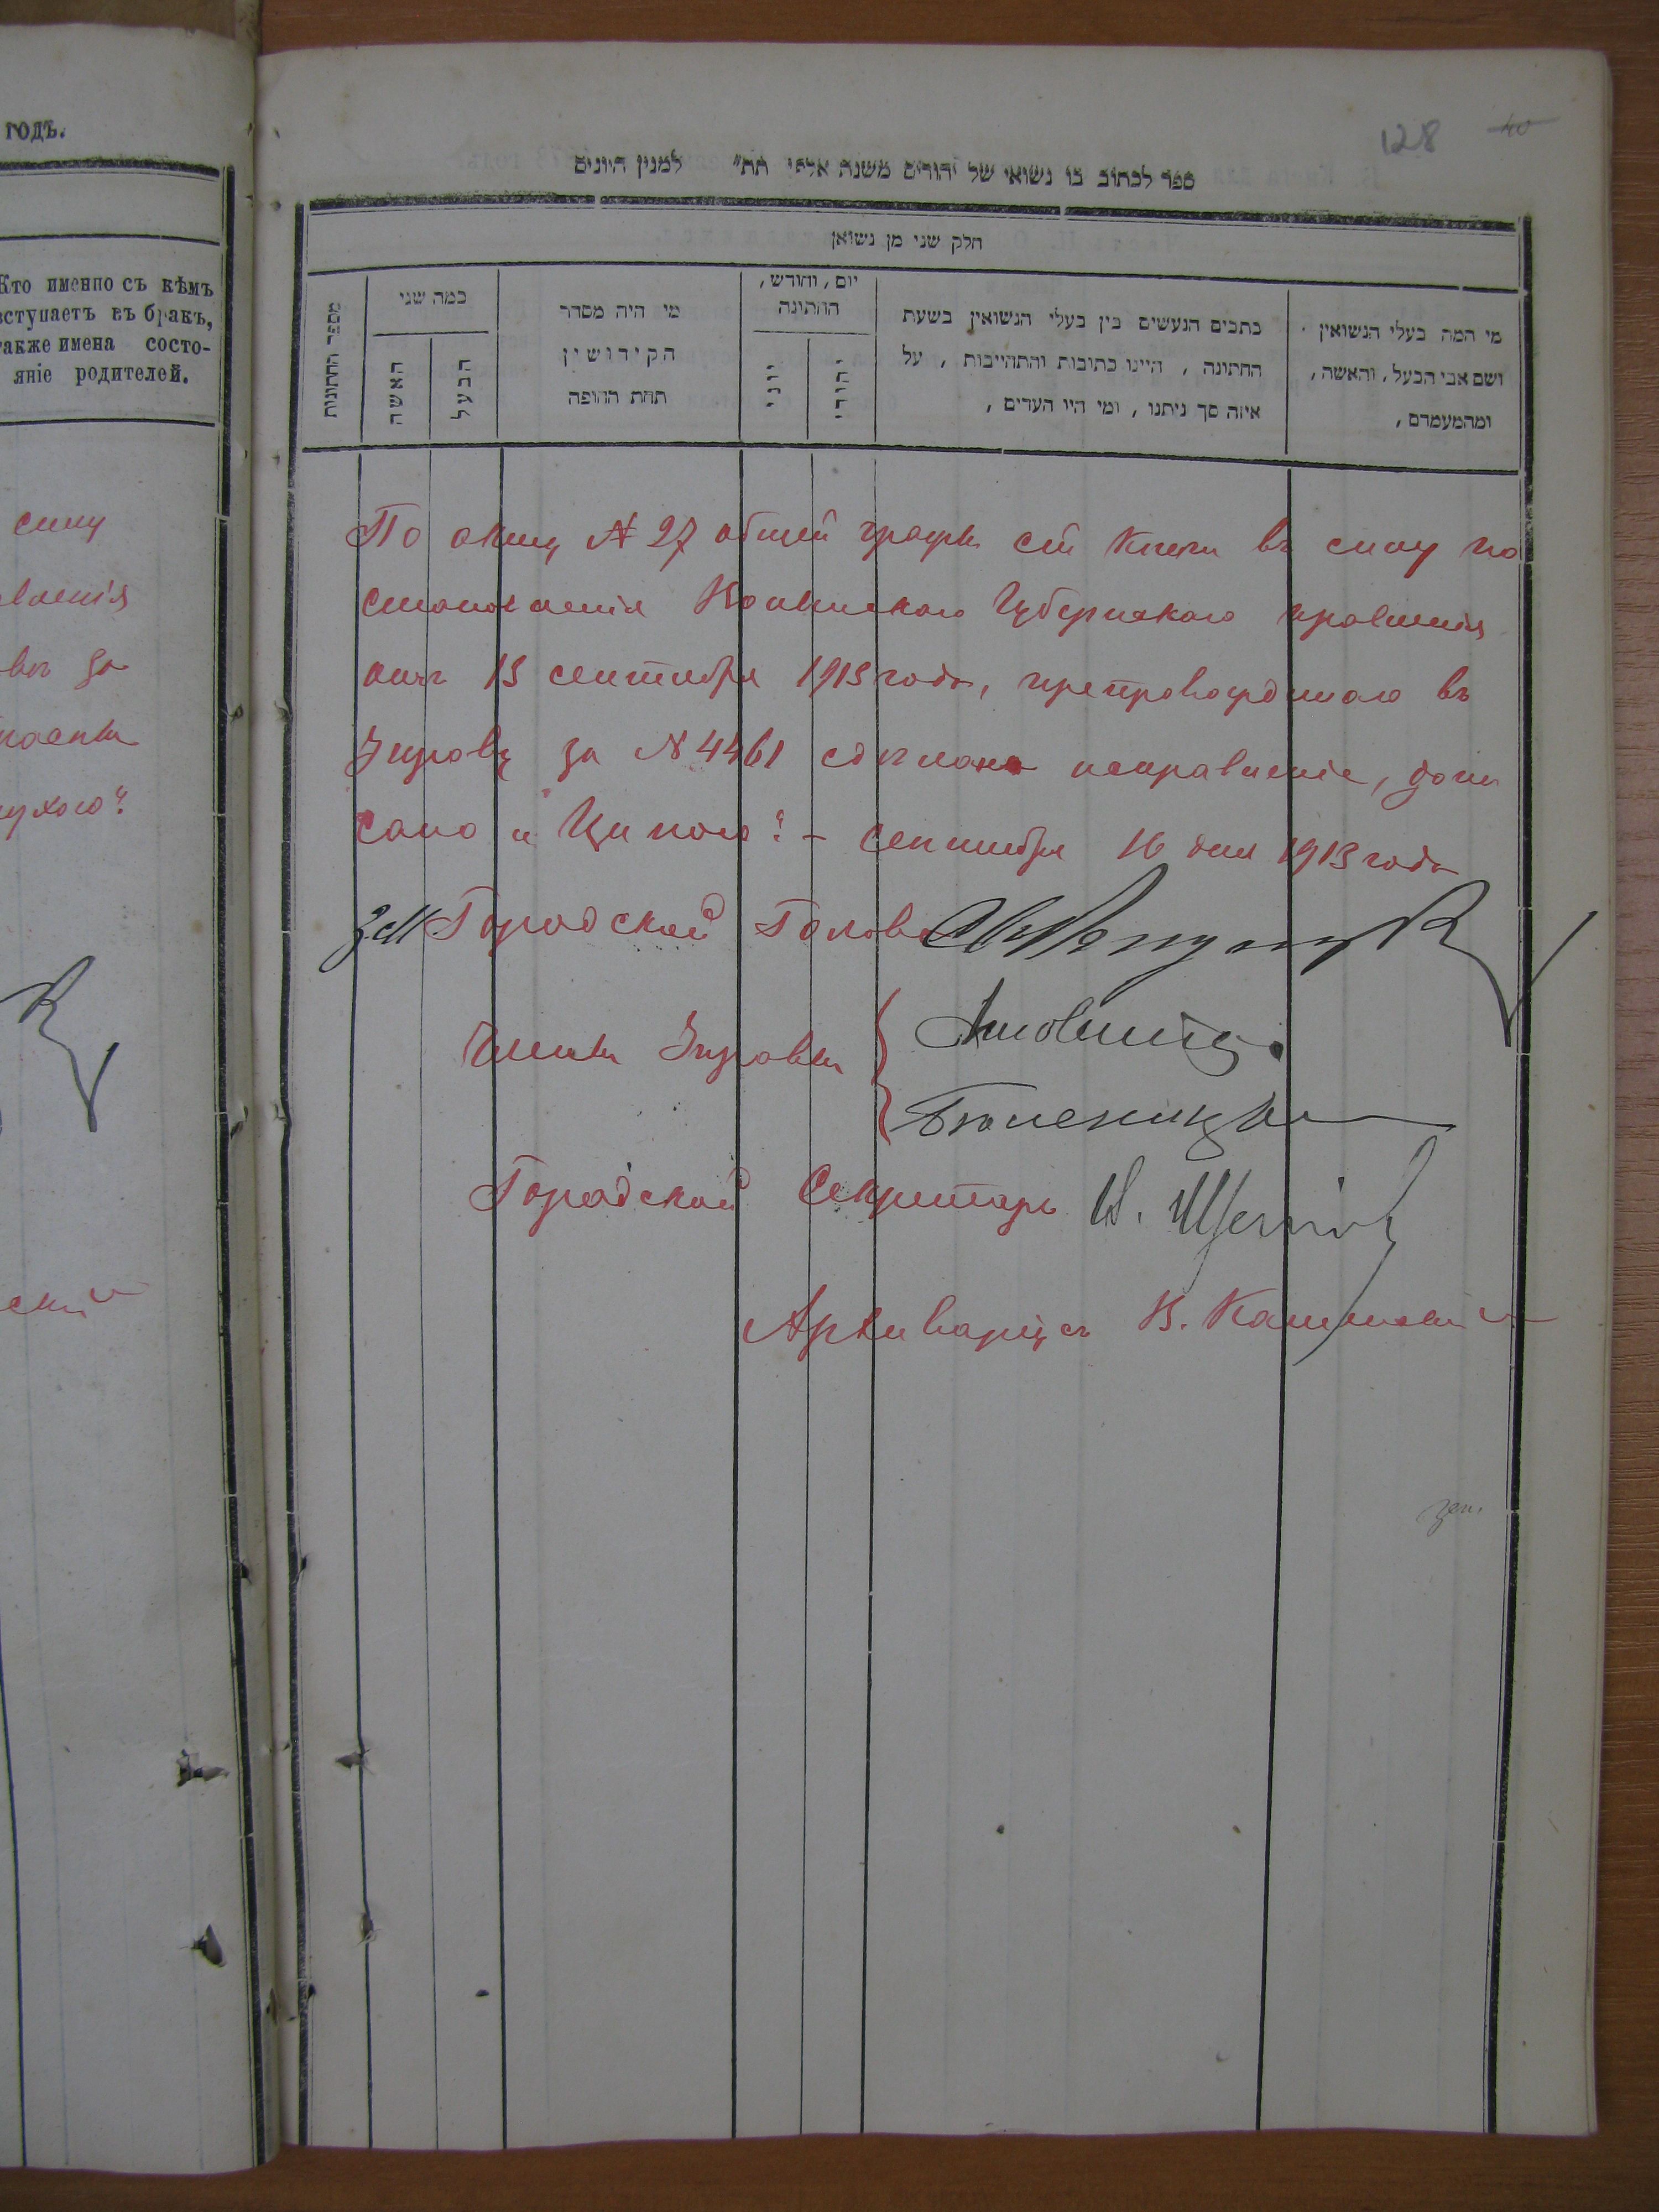 годъ.
Кто именно съ кѣмъ
вступаетъ въ бракъ,
также имена состо-
яніе родителей.
силу
вленія
въ за
ского
128
40
ספר לכתוב בו נשואי של יהודים משנת אלפי תת״ למנין היונים
חלק שני מן נשואן
מספר החתונות
כמה שני
האשה
הבעל
מי היה מסדר
הקידושין
תחת החופה
יום, וחודש,
החתונה
יוני
יהודי
כתבים הנעשים בין בעלי הנשואין בשעת
החתונה, היינו כתובות והתהייבות, על
איזה סך ניתנו, ומי היו העדים,
מי המה בעלי הנשואין
ושם אבי הבעל, והאשה,
ומהמעמדם,
По акту № 27 общей графы сей книги въ силу по
становленія Волынскаго Губернскаго правленія
отъ 13 сентября 1913 года, препровожденнаго въ
Управу за № 4461 сдѣлано исправленіе, допи
сано и „Ципою“ – Сентября 16 дня 1913 года
Зам Городской Голова
Члены Управы
Городской Секретарь
Архиваріусъ В.